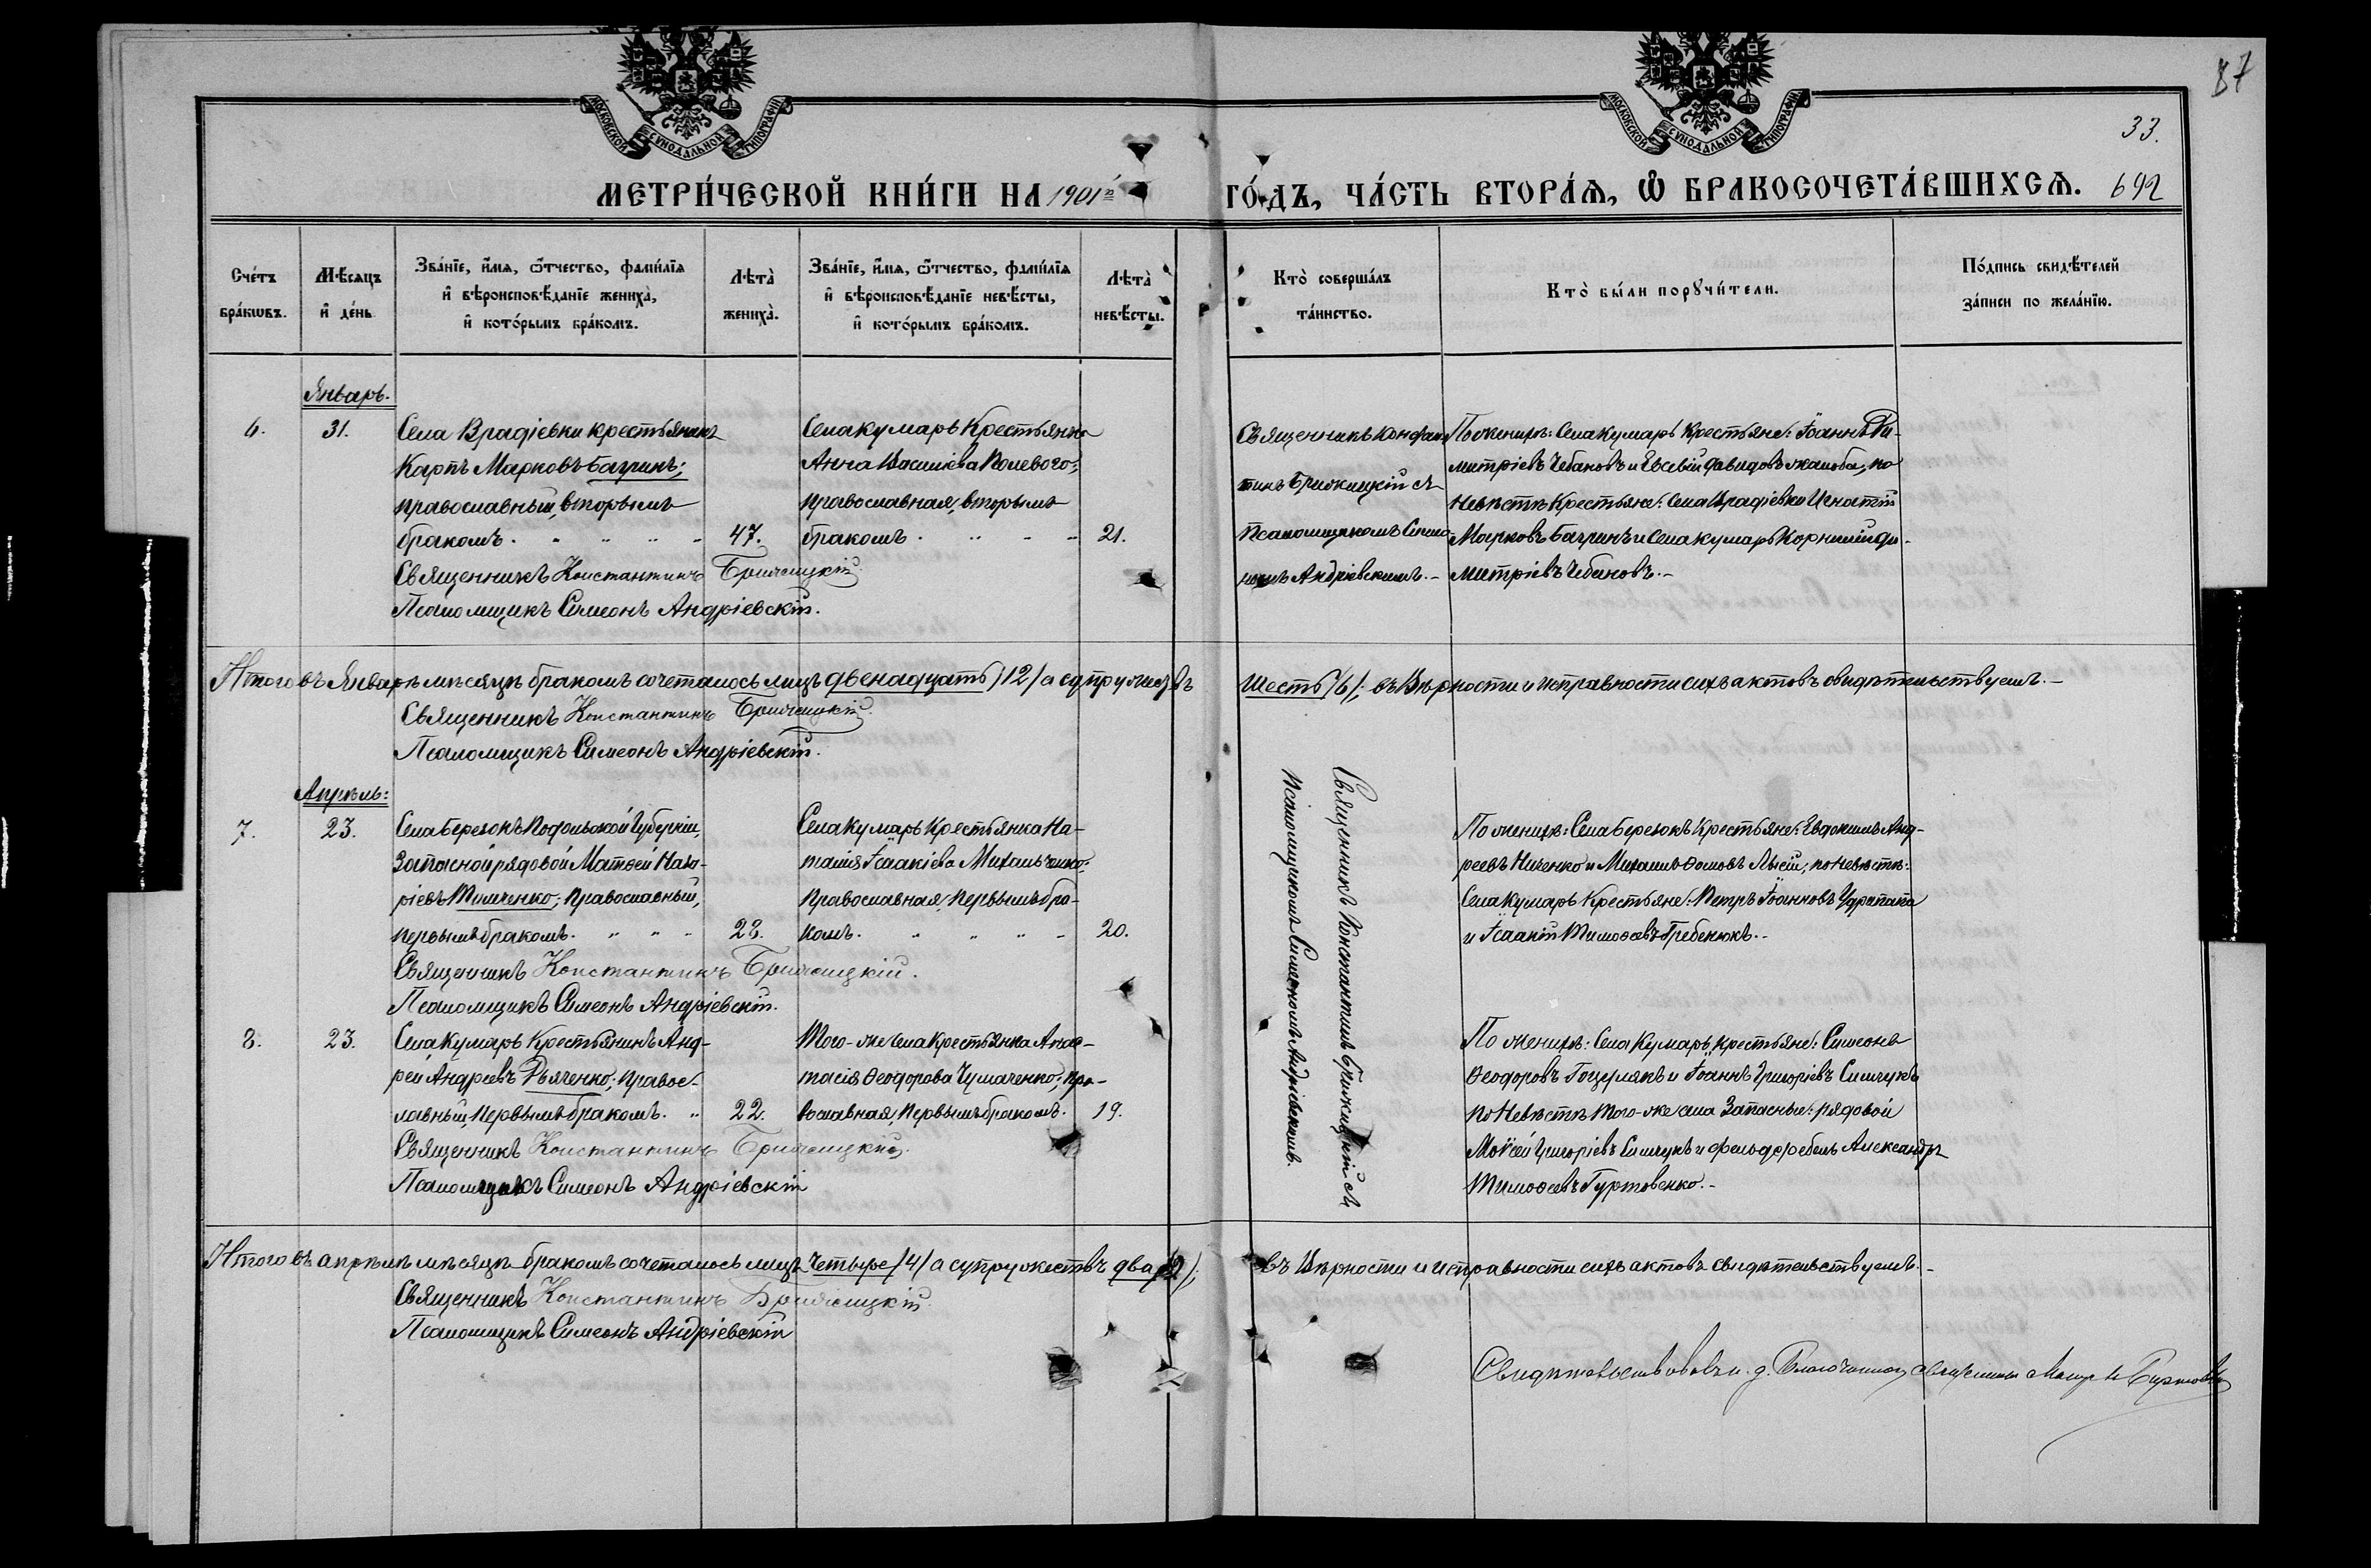 87
33.
МОСКОВСКОЙ СѴНОДАЛЬНОЙ ТИПОГРАФІИ
МОСКОВСКОЙ СѴНОДАЛЬНОЙ ТИПОГРАФІИ
МЕТРИ́ЧЕСКОЙ КНИ́ГИ НА 1901й ГО́ДЪ, ЧА́СТЬ ВТОРА́Я, Ѡ҆ БРАКОСОЧЕТА́ВШИХСЯ. 692
Сче́тъ бра́кѡвъ.
Мѣ́сяцъ и҆ де́нь
Зва́нїе, и҆́мя, ѻ҆́тчество, фами́лїя
и҆ вѣроисповѣ́данїе жениха̀,
и҆ кото́рымъ бра́комъ.
Лѣта̀ жениха̀.
Зва́нїе, и҆́мя, ѻ҆́тчество, фами́лїя
и҆ вѣроисповѣ́данїе невѣ́сты,
и҆ кото́рымъ бра́комъ.
Лѣта̀ невѣ́сты.
Кто̀ соверша́лъ та́инство.
Кто̀ бы́ли порꙋчи́тели.
По́дпись свидѣ́телей
за́писи по жела́нїю.
Январь.
6. 31.
Села Врадіевки крестьянинъ
Карпъ Марковъ Багринъ;
православный, вторымъ
бракомъ. 47.
Села Кумаръ Крестьянка
Анна Василіева Полевого;
православная, вторымъ
бракомъ. 21.
Священникъ Констан-
тинъ Брижицкій съ
Псаломщикомъ Симео-
номъ Андріевскимъ.-
По женихѣ: Села Кумаръ Крестьяне: Іоаннъ Ди-
митріевъ Чебановъ и Евсевій Давидовъ Жалоба, по
Невѣстѣ Крестьяне: Села Врадіевки Игнатій
Марковъ Багринъ и Села Кумаръ Корнилій Ди-
митріевъ Чебановъ.-
Священникъ Константинъ Брижицкій.
Псаломщикъ Симеонъ Андріевскій.
Итого въ Январѣ мѣсяцѣ бракомъ сочеталось лицъ двенадцать /12/ а супружествъ шесть /6/; въ вѣрности и исправности сихъ актовъ свидѣтельствуемъ.-
Священникъ Константинъ Брижицкій.
Псаломщикъ Симеонъ Андріевскій.
Апрѣль:
7. 23.
Села Березокъ Подольской Губерніи,
Запасной рядовой Матѳей Наза-
ріевъ Томченко; Православный,
первымъ бракомъ. 28.
Села Кумаръ Крестьянка На-
талія Ісаакіева Михальченко;
Православная, первымъ бра-
комъ. 20.
Священникъ Константинъ Брижицкій съ
Псаломщикомъ Симеономъ Андріевскимъ.
По женихѣ: Села Березокъ Крестьяне: Евдокимъ Анд-
реевъ Ниченко и Михаилъ Ѳомовъ Лысій, по Невѣстѣ:
Села Кумаръ Крестьяне: Петръ Іоанновъ Царапака
и Ісаакій Тимоѳеевъ Гребенюкъ.-
Священникъ Константинъ Брижицкій.
Псаломщикъ Симеонъ Андріевскій.
8. 23.
Села Кумаръ Крестьянинъ Анд-
рей Андреевъ Дьяченко; правос-
лавный, Первымъ бракомъ. 22.
Того-же села Крестьянка Анас-
тасія Ѳеодорова Чумаченко; Пра-
вославная, Первымъ бракомъ. 19.
По женихѣ: Села Кумаръ, крестьяне: Симеонъ
Ѳеодоровъ Гоцулякъ и Іоаннъ Григоріевъ Симчукъ
по Невѣстѣ Того-же села Запасные: рядовой
Моисей Григоріевъ Симчукъ и фельдфебель Александръ
Тимоѳеевъ Гуртовенко.-
Священникъ Константинъ Брижицкій.
Псаломщикъ Симеонъ Андріевскій
Итого въ апрѣлѣ мѣсяцѣ бракомъ сочеталось лицъ четыре /4/ а супружествъ два /2/; въ вѣрности и исправности сихъ актовъ свидѣтельствуемъ.-
Священникъ Константинъ Брижицкій.
Псаломщикъ Симеонъ Андріевскій
Свидѣтельствовалъ и. д. Благочиннаго священникъ